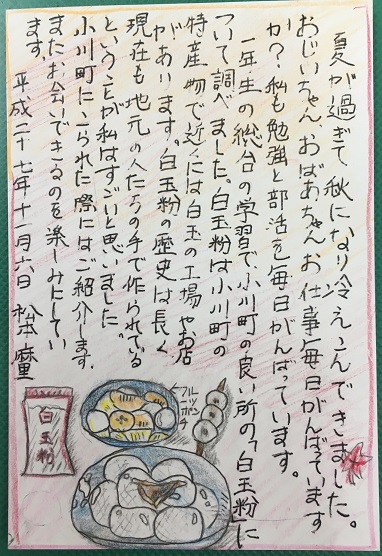 夏が過ぎて秋になり冷えこんできました。
おじいちゃん、おばあちゃんお仕事毎日がんばっています
か？私も勉強と部活を毎日がんばっています。
一年生の総合の学習で、小川町の良い所の「白玉粉」に
ついて調べました。白玉粉は小川町の
特産物で近くには白玉の工場やお店
があります。白玉粉の歴史は長く
現在も地元の人たちの手で作られている
ということが私はすごいと思いました。
小川町にこられた際にはご紹介します。
またお会いできるのを楽しみにしてい
ます。 平成二十七年十一月六日 松本
フルーツポンチ
白玉粉